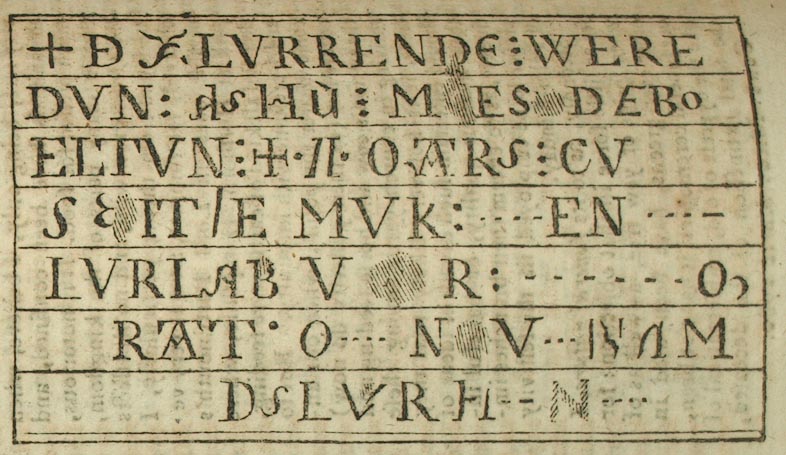 + Đ LVRRENDE⋮WERE
DVN: AsHÙ⋮ M ES DEBo
ELTVN⋮+·II· O·ARS⋮CV
S IT/E MVK:····EN····–
LVRLAB V R:-------O,
RAT·O···· N V··· N A M
DSLVRH-- N ····